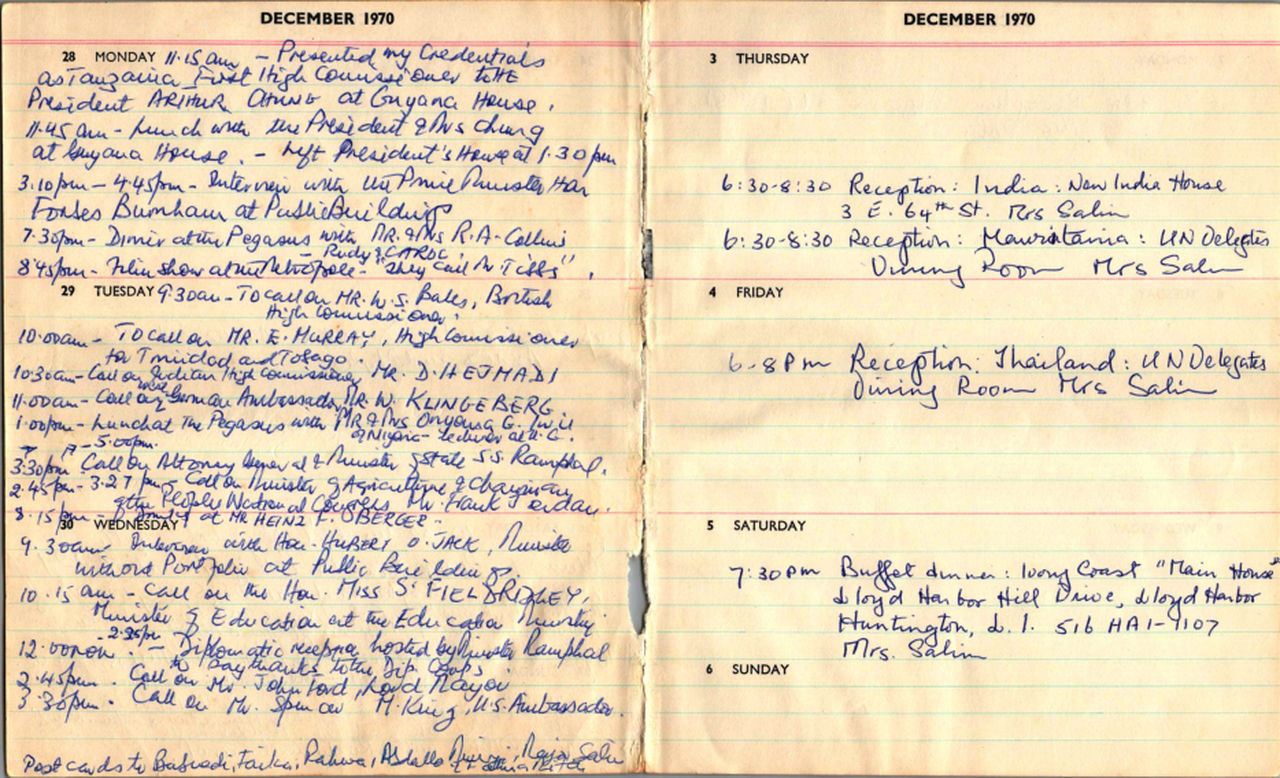 DECEMBER 1970
28 MONDAY 11.15 am - Presented my Credentials
as Tanzania First High Comissioner to THE
President ARTHUR CHUNG at Guyana House.
11.45 am - Lunch with the President & Mrs Chung
at Guyana House. - Left President's House at 1.30 pm
3.10pm - 4.45pm - Interview with the Prime Minister Hon
Forbes Burnham at Public Buildings
7.30pm - Dinner at the Pegasus with MR. & Mrs R.A. Collins
- Rudy & CAROL.
8.45pm - Film show at the Metropole - "They Call Mr Tibbs".
29 TUESDAY 9.30am - To call on MR. W.S. Bates, British
High Comissioner.
10.00am - To call on MR. E. MURRAY, High Comissioner
for Trinidad and Tobago.
10.30am - Call on Indian High Comissioner MR. D. HEJMADI
11.00am - Call on West German Ambassador, MR. W. KLINGEBERG.
1.00pm - Lunch at the Pegasus with MR & Mrs G.
of Nigeria - lecturer at U.G.
- 5.00pm.
3.30pm Call on Attorney General & Minister of State S.S. Ramphal.
2.45pm - 3.27pm - Call on Minister of Agriculture & Chairman
of the Peoples National Congress Mr. Frank
8.15pm - at MR HEINZ F.
30 WEDNESDAY
9.30am Interview with Hon. HUBERT O. JACK, Minister
without Portfolio at Public Buildings.
10.15 am - Call on the Hon. Miss S. FIELD RIDLEY,
Minister of Education at the Education Ministry
- 2.35pm
12.00 noon - Diplomatic reception hosted by Minister Ramphal
to say thanks to the Dip. Corps.
2.45pm. Call on Mr. John Ford, Lord Mayor
3.30pm. Call on Mr. Spencer M. King, U.S. Ambassador.
Post cards to Fatka, Rahma, Abdalla
DECEMBER 1970
3 THURSDAY
6:30-8:30 Reception: India: New India House
3 E. 64th St. Mrs Salim
6:30-8:30 Reception: Mauritania: UN Delegates
Dining Room Mrs Salim
4 FRIDAY
6-8pm Reception: Thailand: UN Delegates
Dining Room Mrs Salim
5 SATURDAY
7:30pm Buffet dinner: Ivory Coast "Main House"
Lloyd Harbor Hill Drive, Lloyd Harbor
Huntington, L.I. 516 HA1-9107
Mrs. Salim
6 SUNDAY